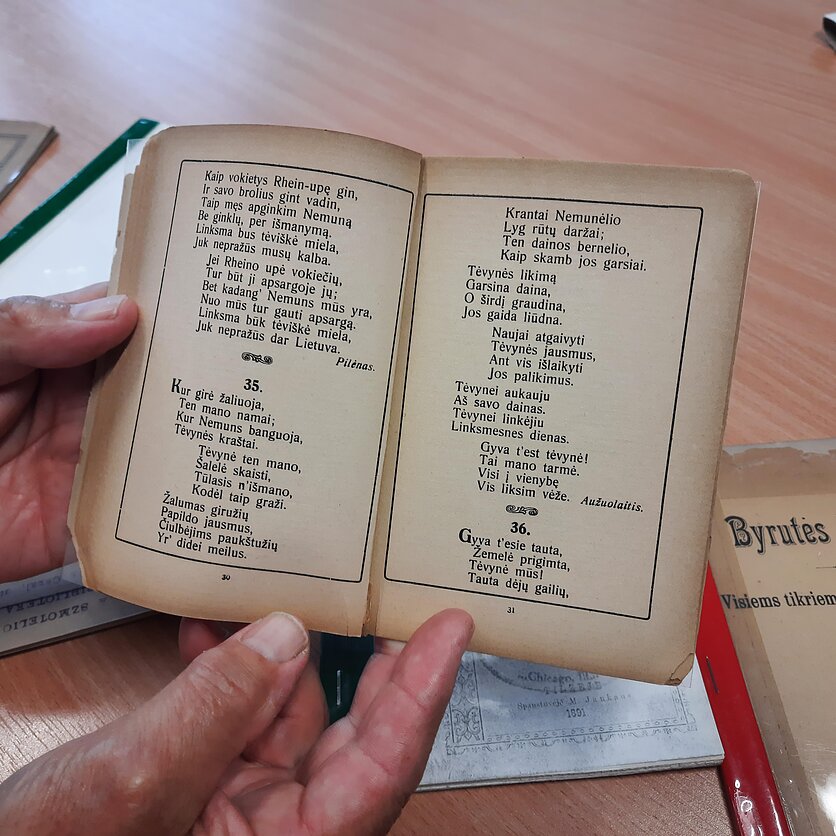 Kaip vokietys Rhein-upę gin,
Ir savo brolius gint vadin,
Taip męs apginkim Nemuną
Be ginklų, per išmanymą.
Linksma bus tėviškė miela,
Juk nepražūs musų kalba.
Jei Rheino upė vokiečių,
Tur būt ji apsargoje jų;
Bet kadang' Nemuns mūs yra,
Nuo mūs tur gauti apsargą.
Linksma būk tėviškė miela,
Juk nepražūs dar Lietuva.
Pilėnas.
35.
Kur girė žaliuoja,
Ten mano namai;
Kur Nemuns banguoja,
Tėvynės kraštai.
Tėvynė ten mano,
Šalelė skaisti,
Tūlasis n'išmano,
Kodėl taip graži.
Žalumas giružių
Papildo jausmus,
Čiulbėjims paukštužių
Yr' didei meilus.
30
Krantai Nemunėlio
Lyg rūtų daržai;
Ten dainos bernelio,
Kaip skamb jos garsiai.
Tėvynės likimą
Garsina daina,
O širdį graudina,
Jos gaida liūdna.
Naujai atgaivyti
Tėvynės jausmus,
Ant vis išlaikyti
Jos palikimus.
Tėvynei aukauju
Aš savo dainas.
Tėvynei linkėju
Linksmesnes dienas.
Gyva t'est tėvynė!
Tai mano tarmė.
Visi į vienybę
Vis liksim vėže.
Aužuolaitis.
36.
Gyva t'esie tauta,
Žemelė prigimta,
Tėvynė mūs!
Tauta dėjų gailių,
31
Byrutės
Visiems tikriem
SZMOTELIO
BIBLIOTEKA
Chicago, Ill.
TILŽĖJE
Spaustuvėje M. Jankaus
1891